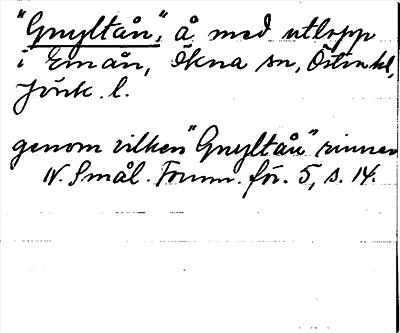 "Gnyltån", å med utlopp
i Emån, Ökna sn, Östra hd,
Jönk. l.
genom vilken "Gnyltån" rinner
N. Smål. Fornm. för. 5, s. 14.